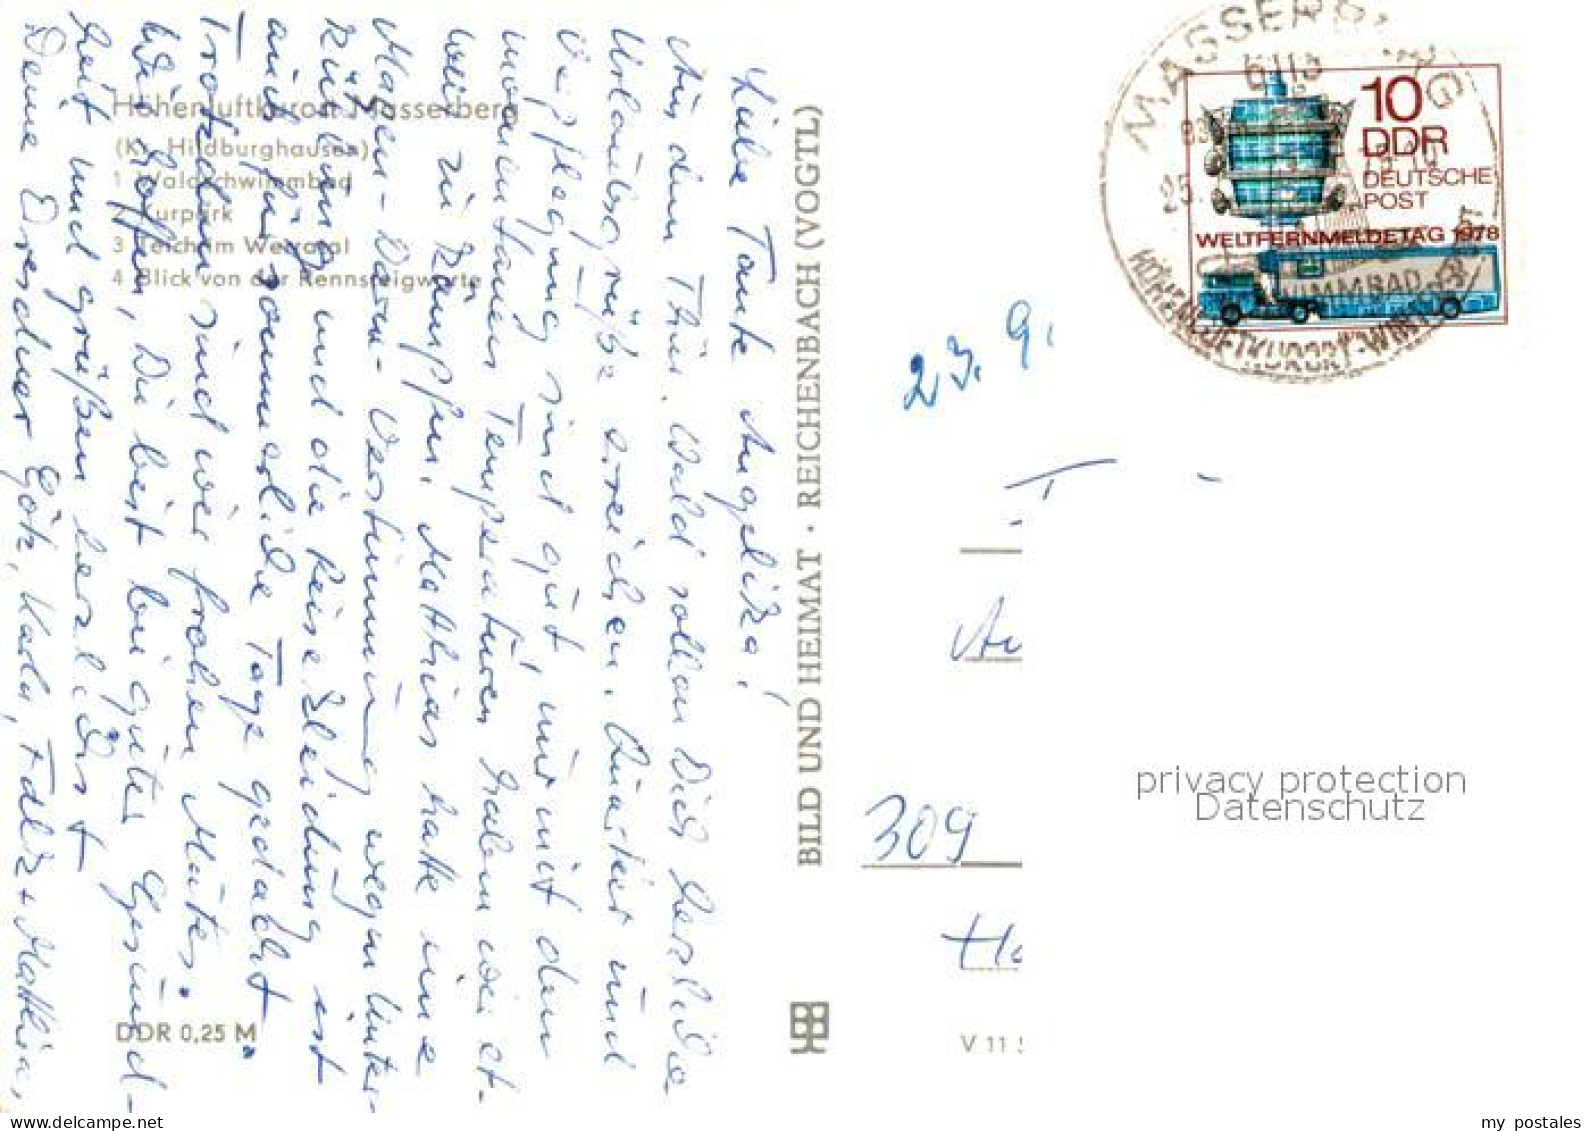 Liebe Tante Angelika!
Aus dem Thür. Wald sollen Dich herzliche
Urlaubsgrüße erreichen. Quartier und
Verpflegung sind gut, nur mit den
momentanen Temperaturen haben wir et-
was zu kämpfen. Matthias hatte eine
Magen-Darm-Verstimmung wegen Unter-
kühlung und die Reisekleidung ist
auch für sommerliche Tage gedacht.
Trotzdem sind wir frohen Mutes.
Wir hoffen, Du bist bei guter Gesund-
heit und grüßen herzlichst
Deine Dresdner Götz, Karla, Falk + Matthias
Höhenluftkurort Masserberg
(Kr. Hildburghausen)
1 Waldschwimmbad
2 Kurpark
3 Teich im Werratal
4 Blick von der Rennsteigwarte
DDR 0,25 M
BILD UND HEIMAT · REICHENBACH (VOGTL)
MASSERB
6113
25.
HÖHENLUFTKURORT-WINTERSPORT
10
DDR
DEUTSCHE
POST
WELTFERNMELDETAG 1978
23. 9.
309
V 11
privacy protection
Datenschutz
my postales